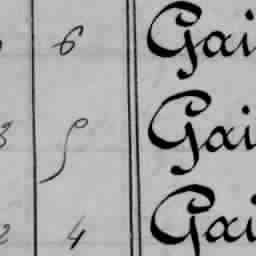 6 Gai
8 5 Gai
2 4 Gai